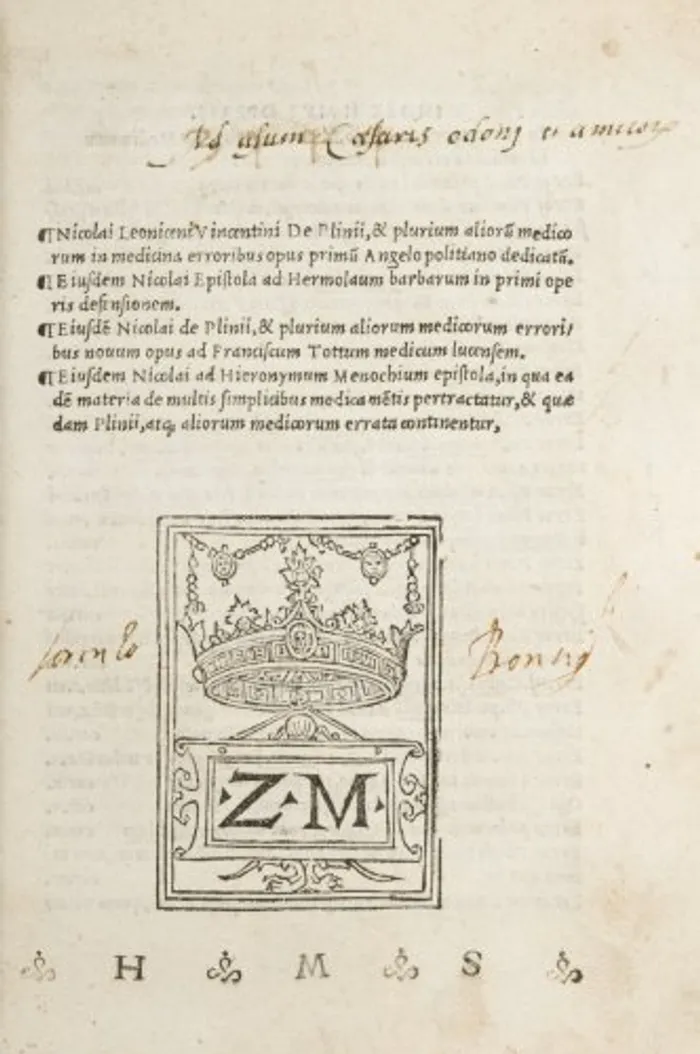 Ad usum Cæsaris odonj et amicor
¶Nicolai Leoniceni Vincentini De Plinii,& plurium aliorũ medico
rum in medicina erroribus opus primũ Angelo politiano dedicatũ.
¶Eiusdem Nicolai Epistola ad Hermolaum barbarum in primi ope
ris defensionem.
¶Eiusdẽ Nicolai de Plinii,& plurium aliorum medicorum errori/
bus nouum opus ad Franciscum Tottum medicum lucensem.
¶Eiusdem Nicolai ad Hieronymum Menochium epistola,in qua ea
dẽ materia de multis simplicibus medicamẽtis pertractatur,& quæ
dam Plinii,atqꝫ aliorum medicorum errata continentur,
Z M
H M S